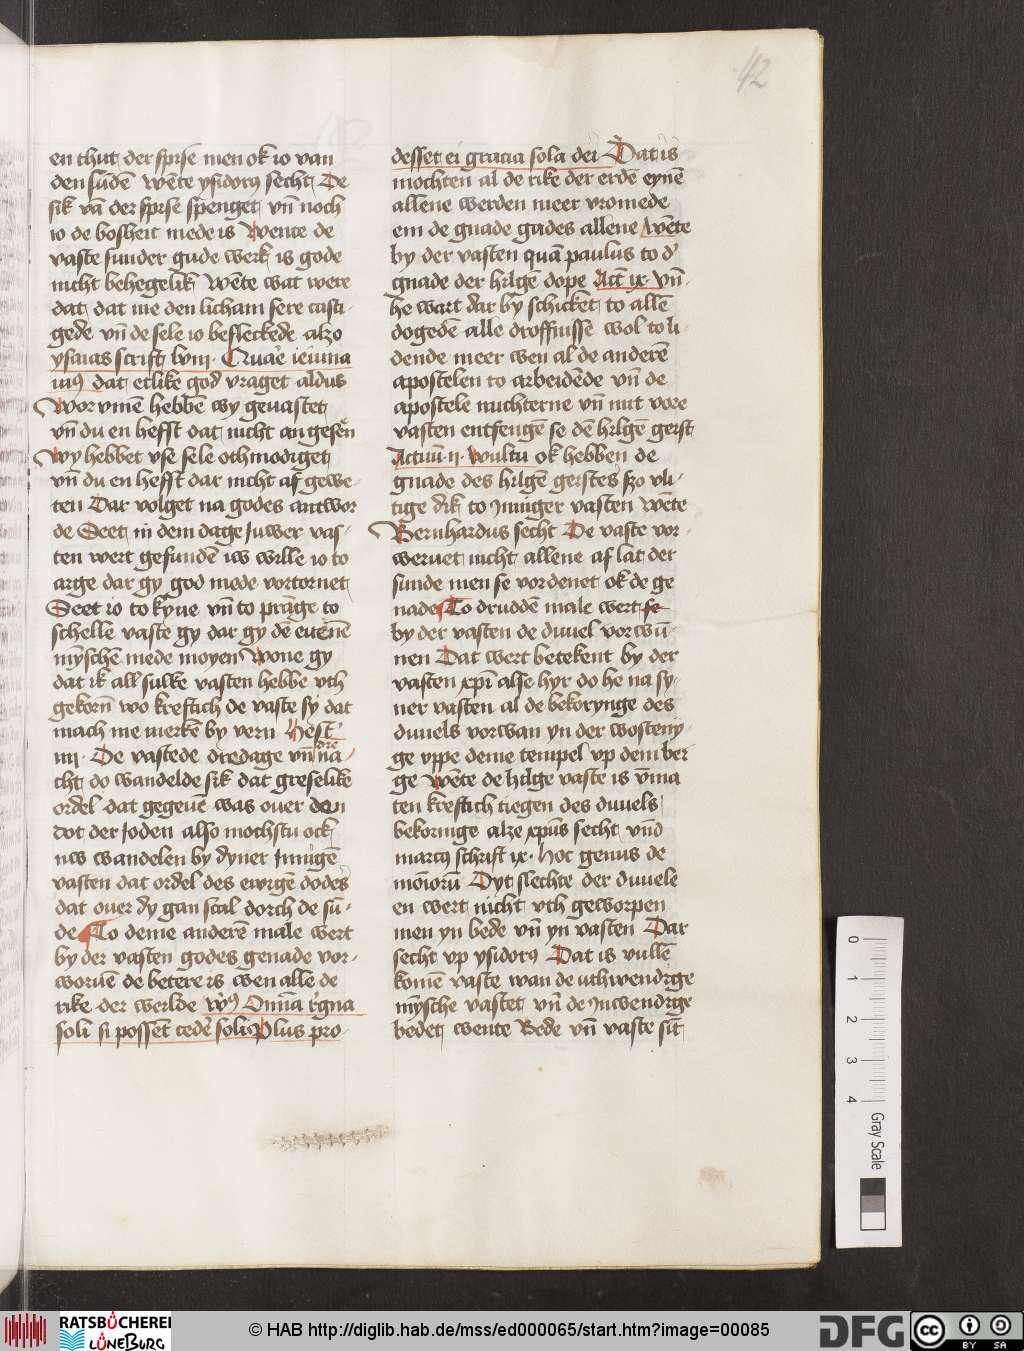 42
en thut der spise men ok io van
den sūdē wēte ysidorꝰ secht De
sik vā der spise spenget vn̄ noch
io de bosheit mede is Wente de
vaste sunder gude werk is gode
nicht behegelik Wēte wat were
dat dat me den licham sere casti-
gede vn̄ de sele io befleckede alzo
ysaias scrift lviij. Quare ieiuna
uimꝰ dat etlike god vraget aldus
Wor vmē hebbē wy geuastet
vn̄ du en hefft dat nicht an gesen
Wy hebbet vse sele othmodiget
vn̄ du en hefft dar nicht af gewe-
ten Dar volget na godes antwor
de Seet in dem dage Juwer vas-
ten wert gefundē iw wille io to
arge dar gy god mede vortornet
Seet io to kyue vn̄ to prāge to
schelle vaste gy dar gy dē euenē
mȳschē mede moyen Wone gy
dat ik all sulke vasten hebbe vth
gekorn̄ wo kreftich de vaste sy dat
mach me merkē by vern Hest
iiij. De vastede dredage vn̄ dre na-
cht do wandelde sik dat greselike
ordel dat gegeuē was ouer den
dot der Joden also mochstu ock
nw wandelen by dyner Jnnigē
vasten dat ordel des ewigē dodes
dat ouer dy gan scal dorch de sū-
de To deme anderē male wert
by der vasten godes genade vor-
woruē de betere is wen alle de
rike der werlde Omīa rigna
soli si posset cedere soli Plus pro-
desset ei gracia sola dei Dat is
mochten al de rike der erdē eynē
allene werden meer vromede
em de gnade gades allene wēte
by der vasten quā paulus to dͥ
gnade der hilgē dope Act ix. vn̄
he wart dar by schicket to allē
dogedē alle droffnisse wol to li-
dende meer wen al de anderē
apostelen to arbeidēde vn̄ de
apostele nuchterne vn̄ mit vore
vasten entfengē se dē hilgē geist
Actuū. ij. wultu ok hebben de
gnade des hilgē geistes szo vli-
tige dik to Jnniger vasten wēte
Bernhardus secht De vaste vor-
weruet nicht allene af lat der
sunde men se vordenet ok de ge
nade To druddē male wert se
by der vasten de duuel vorwū-
nen Dat wert betekent by der
vasten xpi alse hyr do he na sy-
ner vasten al de bekorynge des
duuels vorwan yn der wosteny-
ge vppe deme tempel vp dem ber
ge Wēte de hilge vaste is vma
ten kreftich tiegen des duuels
bekoringe alze xpūs secht vnd
marcꝰ schrift ix. Hoc genus de
moniorū Dyt slechte der duuele
en wert nicht vth geworpen
men yn bede vn̄ yn vasten Dar
secht vp ysidorꝰ Dat is vullē
komē vaste wan de uthwendige
mȳsche vastet vn̄ de Jnwendige
bedet wente Bede vn̄ vaste sīt
0
1
2
3
4
Gray Scale
RATSBÜCHEREI
LÜNEBURG
© HAB http://diglib.hab.de/mss/ed000065/start.htm?image=00085
DFG
cc
BY
SA